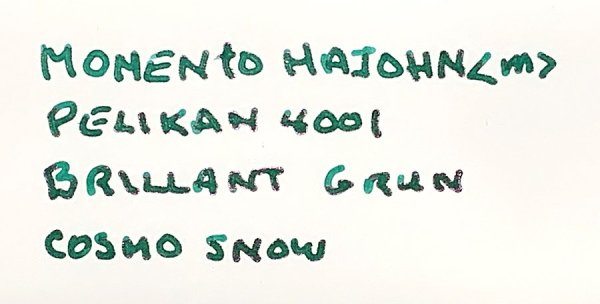 MOMENtO MAJOHN<m>
PELIKAN 4001
BRILLANT GRUN
COSMO SNOW